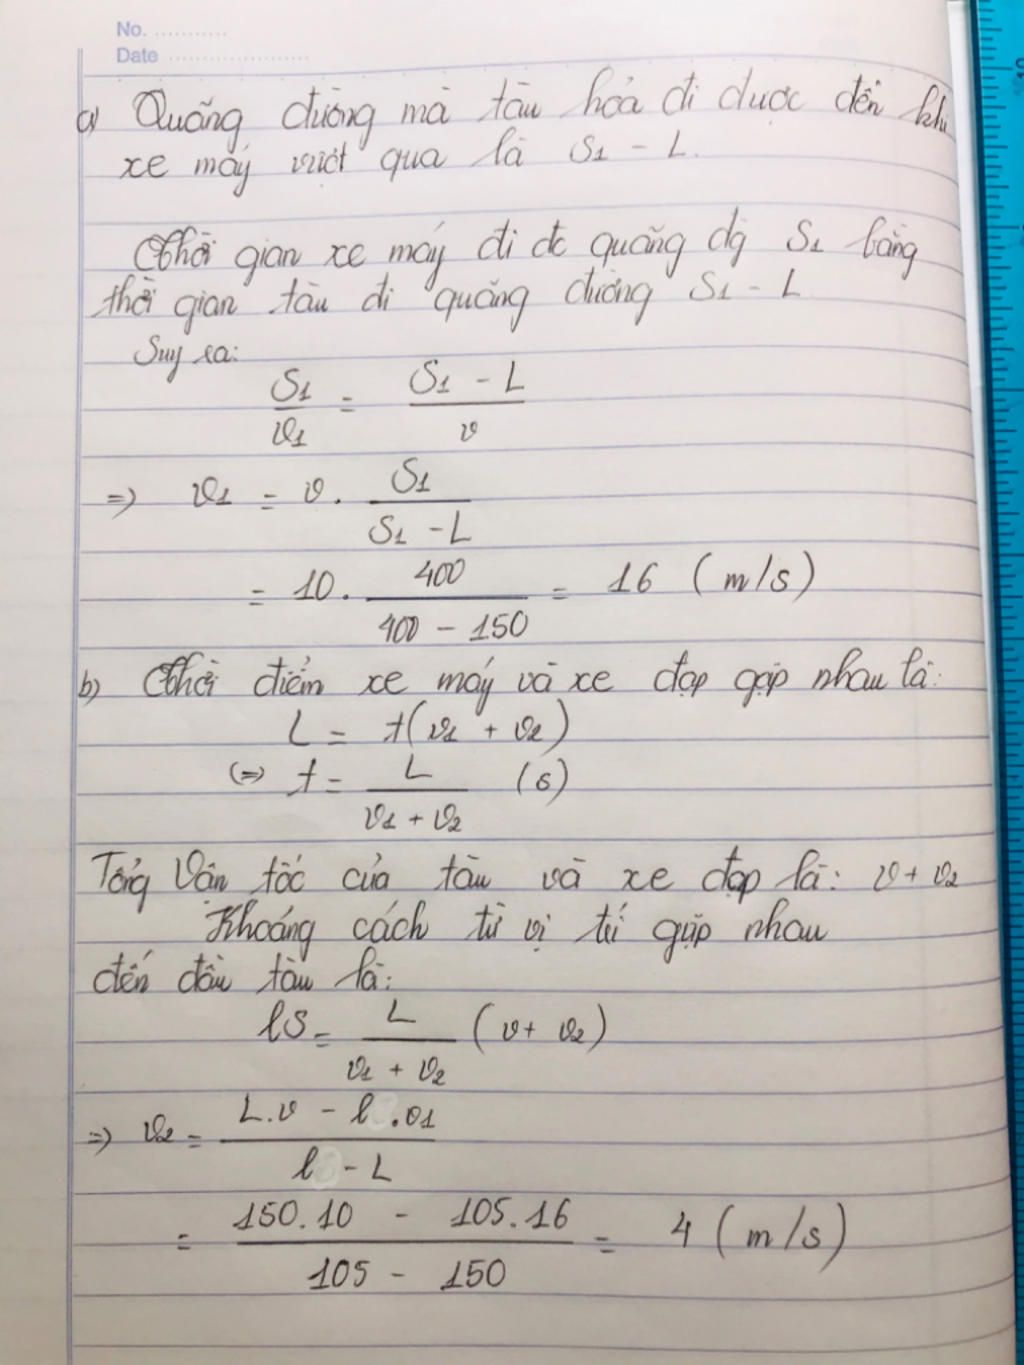 No. ...........
Date .....................
a) Quãng đường mà tàu hỏa đi được đến khi
xe máy vượt qua là S1 - L.
Thời gian xe máy đi đc quãng đg S1 bằng
thời gian tàu đi quãng đường S1 - L
Suy ra:
S1/v1 = (S1 - L)/v
=> v1 = v . S1/(S1 - L)
= 10 . 400/(400 - 150) = 16 (m/s)
b) Thời điểm xe máy và xe đạp gặp nhau là:
L = t(v1 + v2)
(=> t = L/(v1 + v2) (s)
Tổng Vận tốc của tàu và xe đạp là: v + v2
Khoảng cách từ vị trí gặp nhau
đến đầu tàu là:
lS = L/(v1 + v2) (v + v2)
=> v2 = (L.v - l.v1)/(l - L)
= (150.10 - 105.16)/(105 - 150) = 4 (m/s)